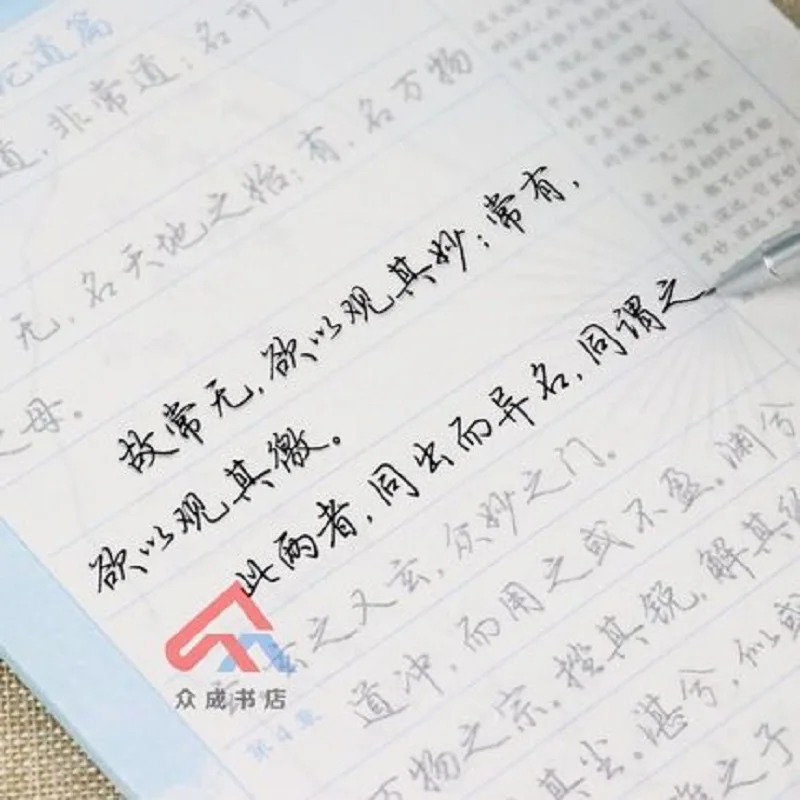 论道篇
道，非常道；名可
无，名天地之始；有，名万物
之母。
故常无，欲以观其妙；常有，
欲以观其徼。
此两者，同出而异名，同谓之
玄。玄之又玄，众妙之门。
第4章
道冲，而用之或不盈。渊兮
万物之宗。挫其锐，解其纷
其尘。湛兮，似或
谁之子
众成书店